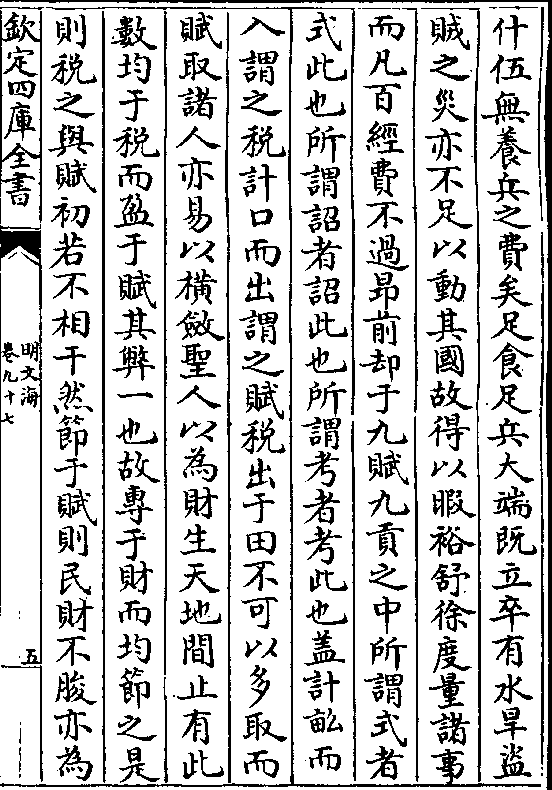 什伍無養兵之費矣足食足兵大端既立卒有水旱盜
賊之災亦不足以動其國故得以暇裕舒徐度量諸事
而凡百經費不過昻前却于九賦九貢之中所謂式者
式此也所謂詔者詔此也所謂考者考此也蓋計畝而
入謂之税計口而出謂之賦税出于田不可以多取而
賦取諸人亦易以橫斂聖人以為財生天地間止有此
數均于税而盈于賦其弊一也故專于財而均節之是
則税之與賦初若不相干然節于賦則民財不朘亦為
欽定四庫全書
明文海
卷九十七
五